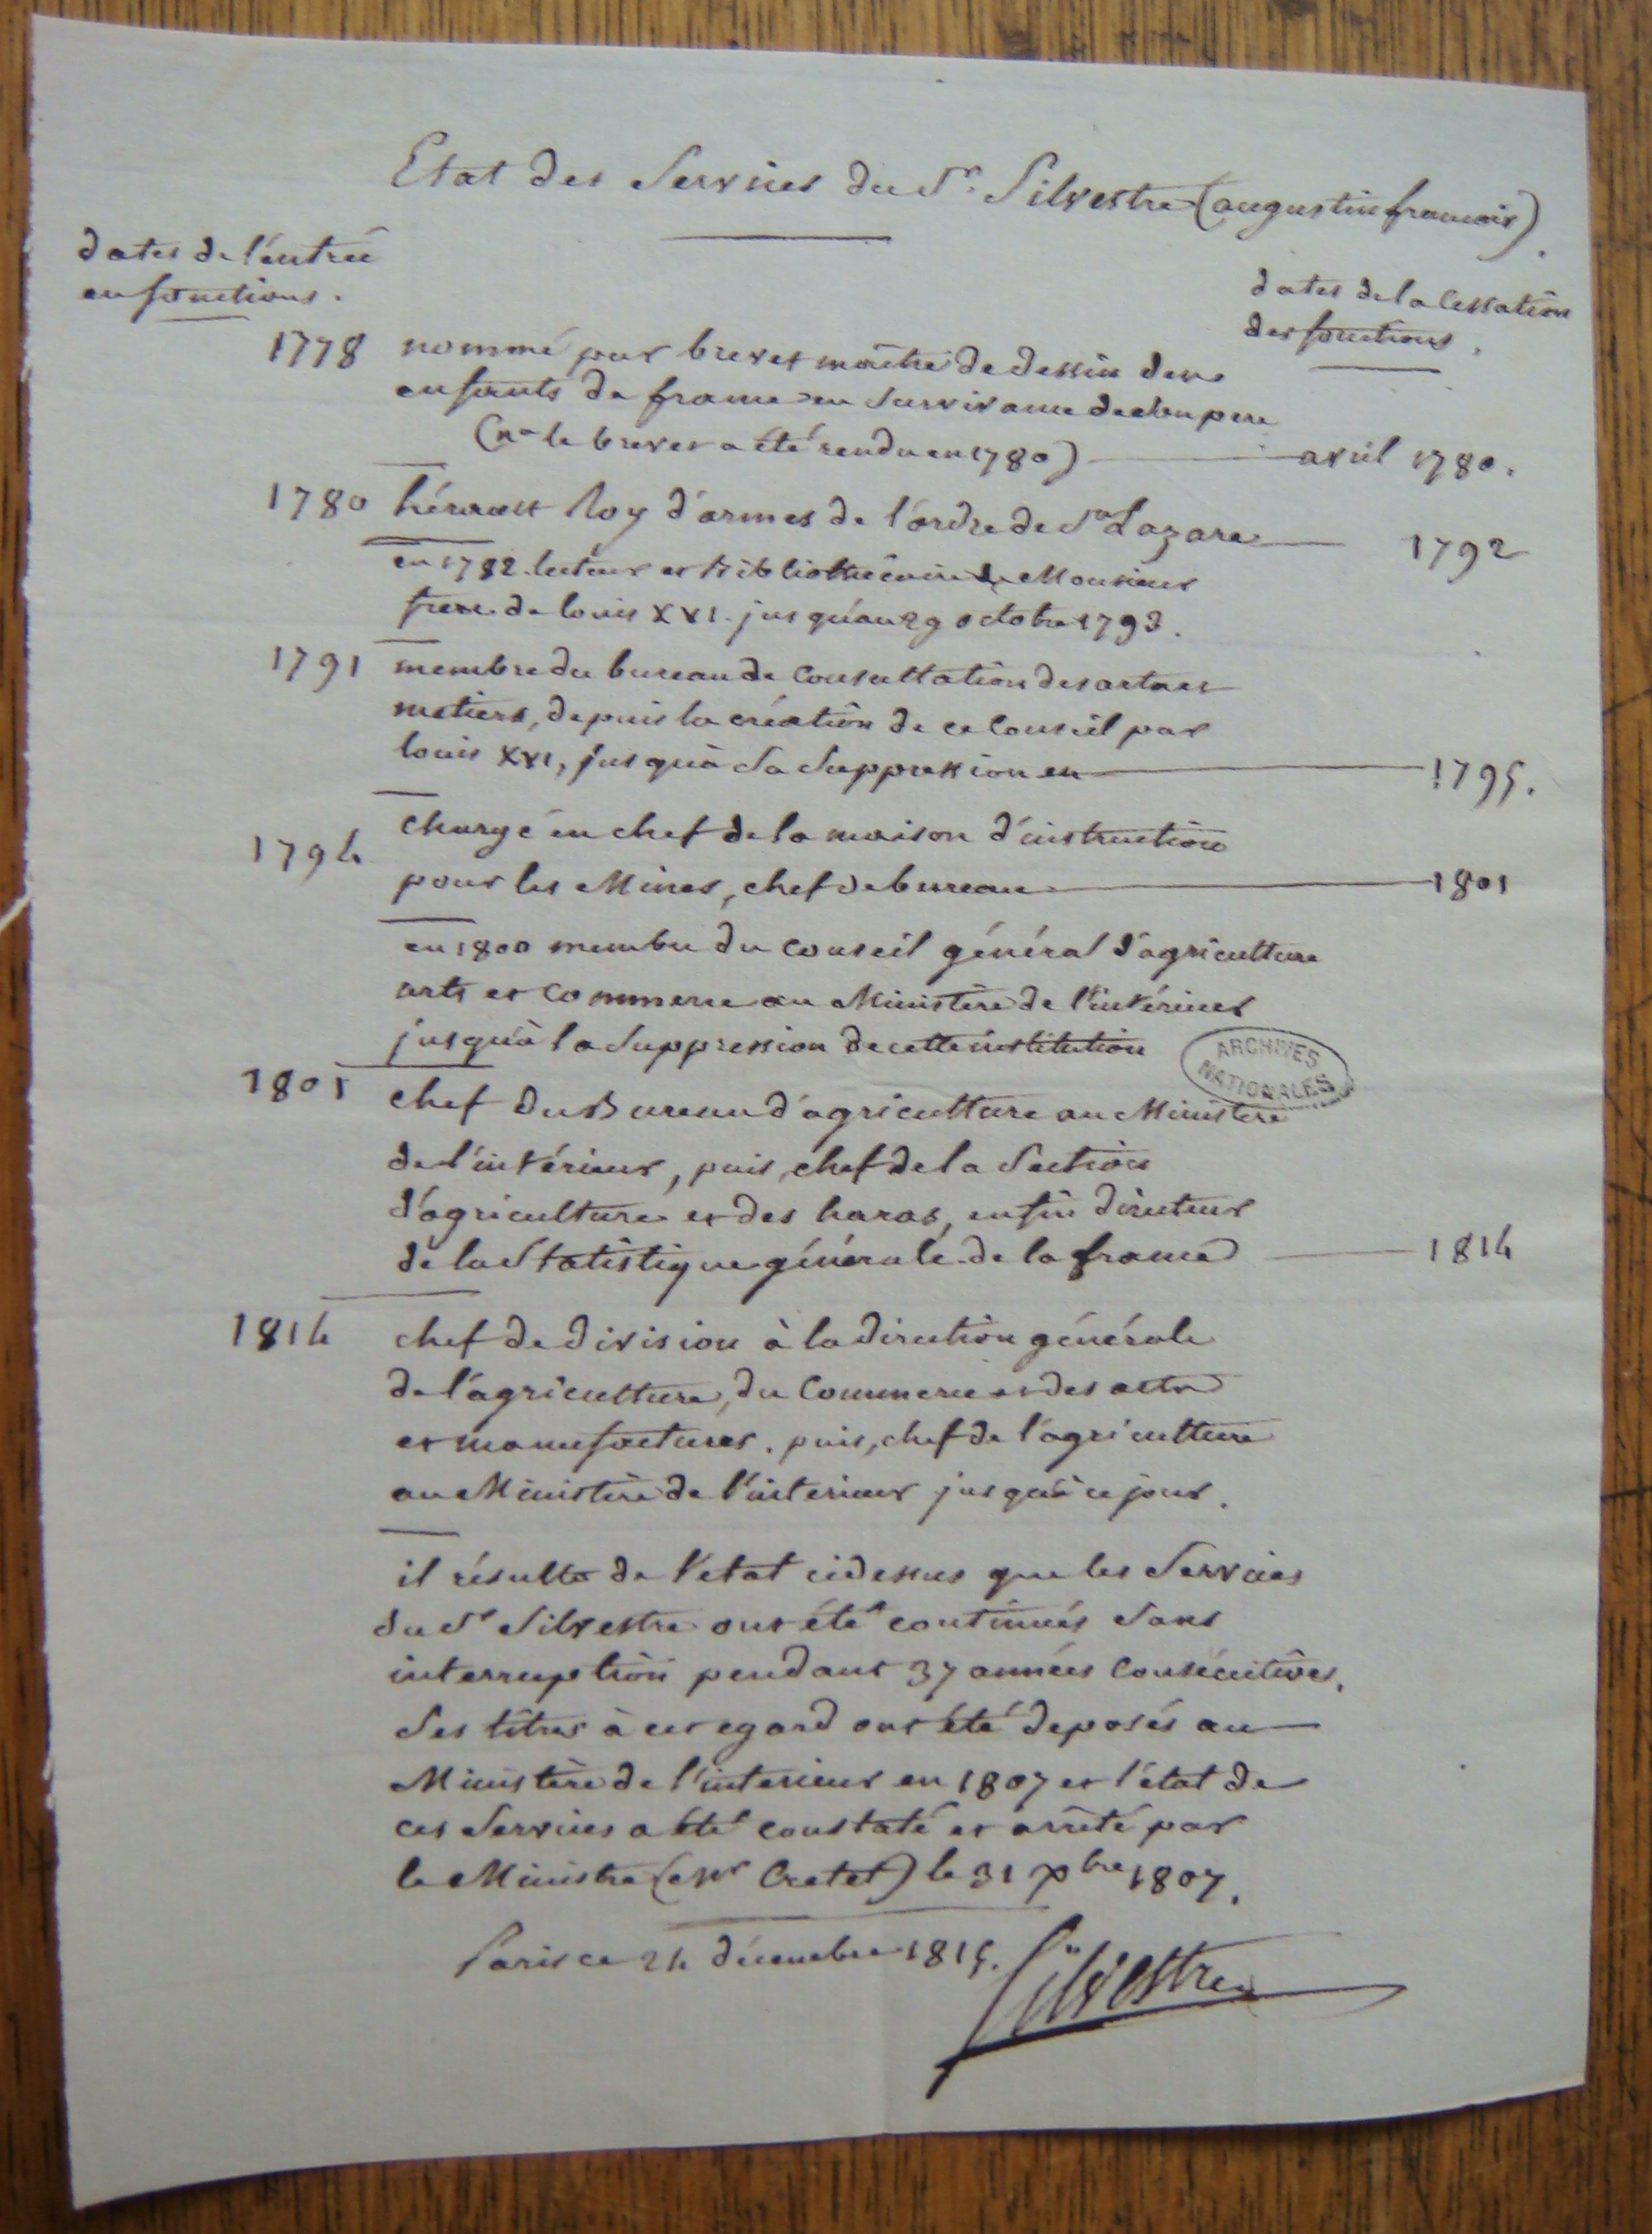 Etat des Services du Sr. Silvestre (augustin francois).
dates de l'entrée
en fonctions.
dates de la Cessation
des fonctions.
1778 nommé par brevet maitre de dessin des
enfants de france en survivance de son pere
(na le brevet a été rendu en 1780) avril 1780.
1780 hérault Roy d'armes de l'ordre de St Lazare 1792
en 1782 lecteur et bibliothécaire de Monsieur
frere de louis XVI jusqu'au 29 octobre 1793.
1791 membre du bureau de Consultation des arts et
metiers, depuis la création de ce Conseil par
louis XVI, jusqu'à sa suppression en 1795.
1794 chargé en chef de la maison d'instruction
pour les Mines, chef de bureau 1801
en 1800 membre du Conseil général d'agriculture
arts et Commerce au Ministère de l'intérieur
jusqu'à la suppression de cette institution
ARCHIVES
NATIONALES
1801 chef du Bureau d'agriculture au Ministere
de l'intérieur, puis, chef de la Section
d'agriculture et des haras, enfin directeur
de la Statistique générale de la france 1814
1814 chef de division à la direction générale
de l'agriculture, du Commerce et des arts
et manufactures. puis, chef de l'agriculture
au Ministère de l'interieur jusqu'à ce jour.
il résulte de l'etat cidessus que les Services
du Sr Silvestre ont été continués sans
interruption pendant 37 années Consécutives.
Ses titres à cet egard ont été deposés au
Ministère de l'interieur en 1807 et l'état de
ces Services a été constaté et arrêté par
le Ministre (Mr Cretet) le 31 Xbre 1807.
Paris ce 24 décembre 1815.
Silvestre